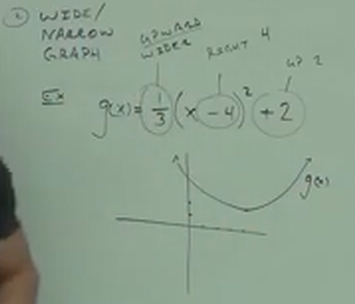 ② WIDE/
NARROW
GRAPH
UPWARD
WIDER
RIGHT 4
UP 2
Ex
g(x) = 1/3 (x - 4)² + 2
g(x)